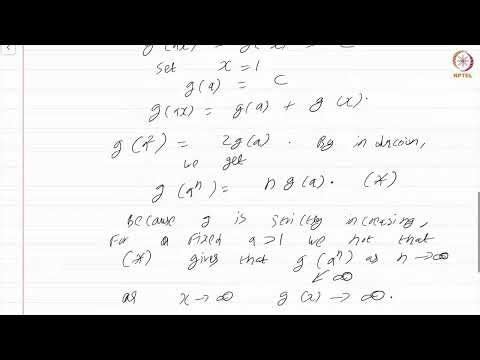 set x = 1
g(a) = C
g(ax) = g(a) + g(x).
g(a²) = 2g(a). By induction,
we get
g(aⁿ) = n g(a). (*)
Because g is strictly increasing,
For a fixed a > 1 we not that
(*) gives that g(aⁿ) as n → ∞
↙ ∞
as x → ∞ g(x) → ∞.
NPTEL